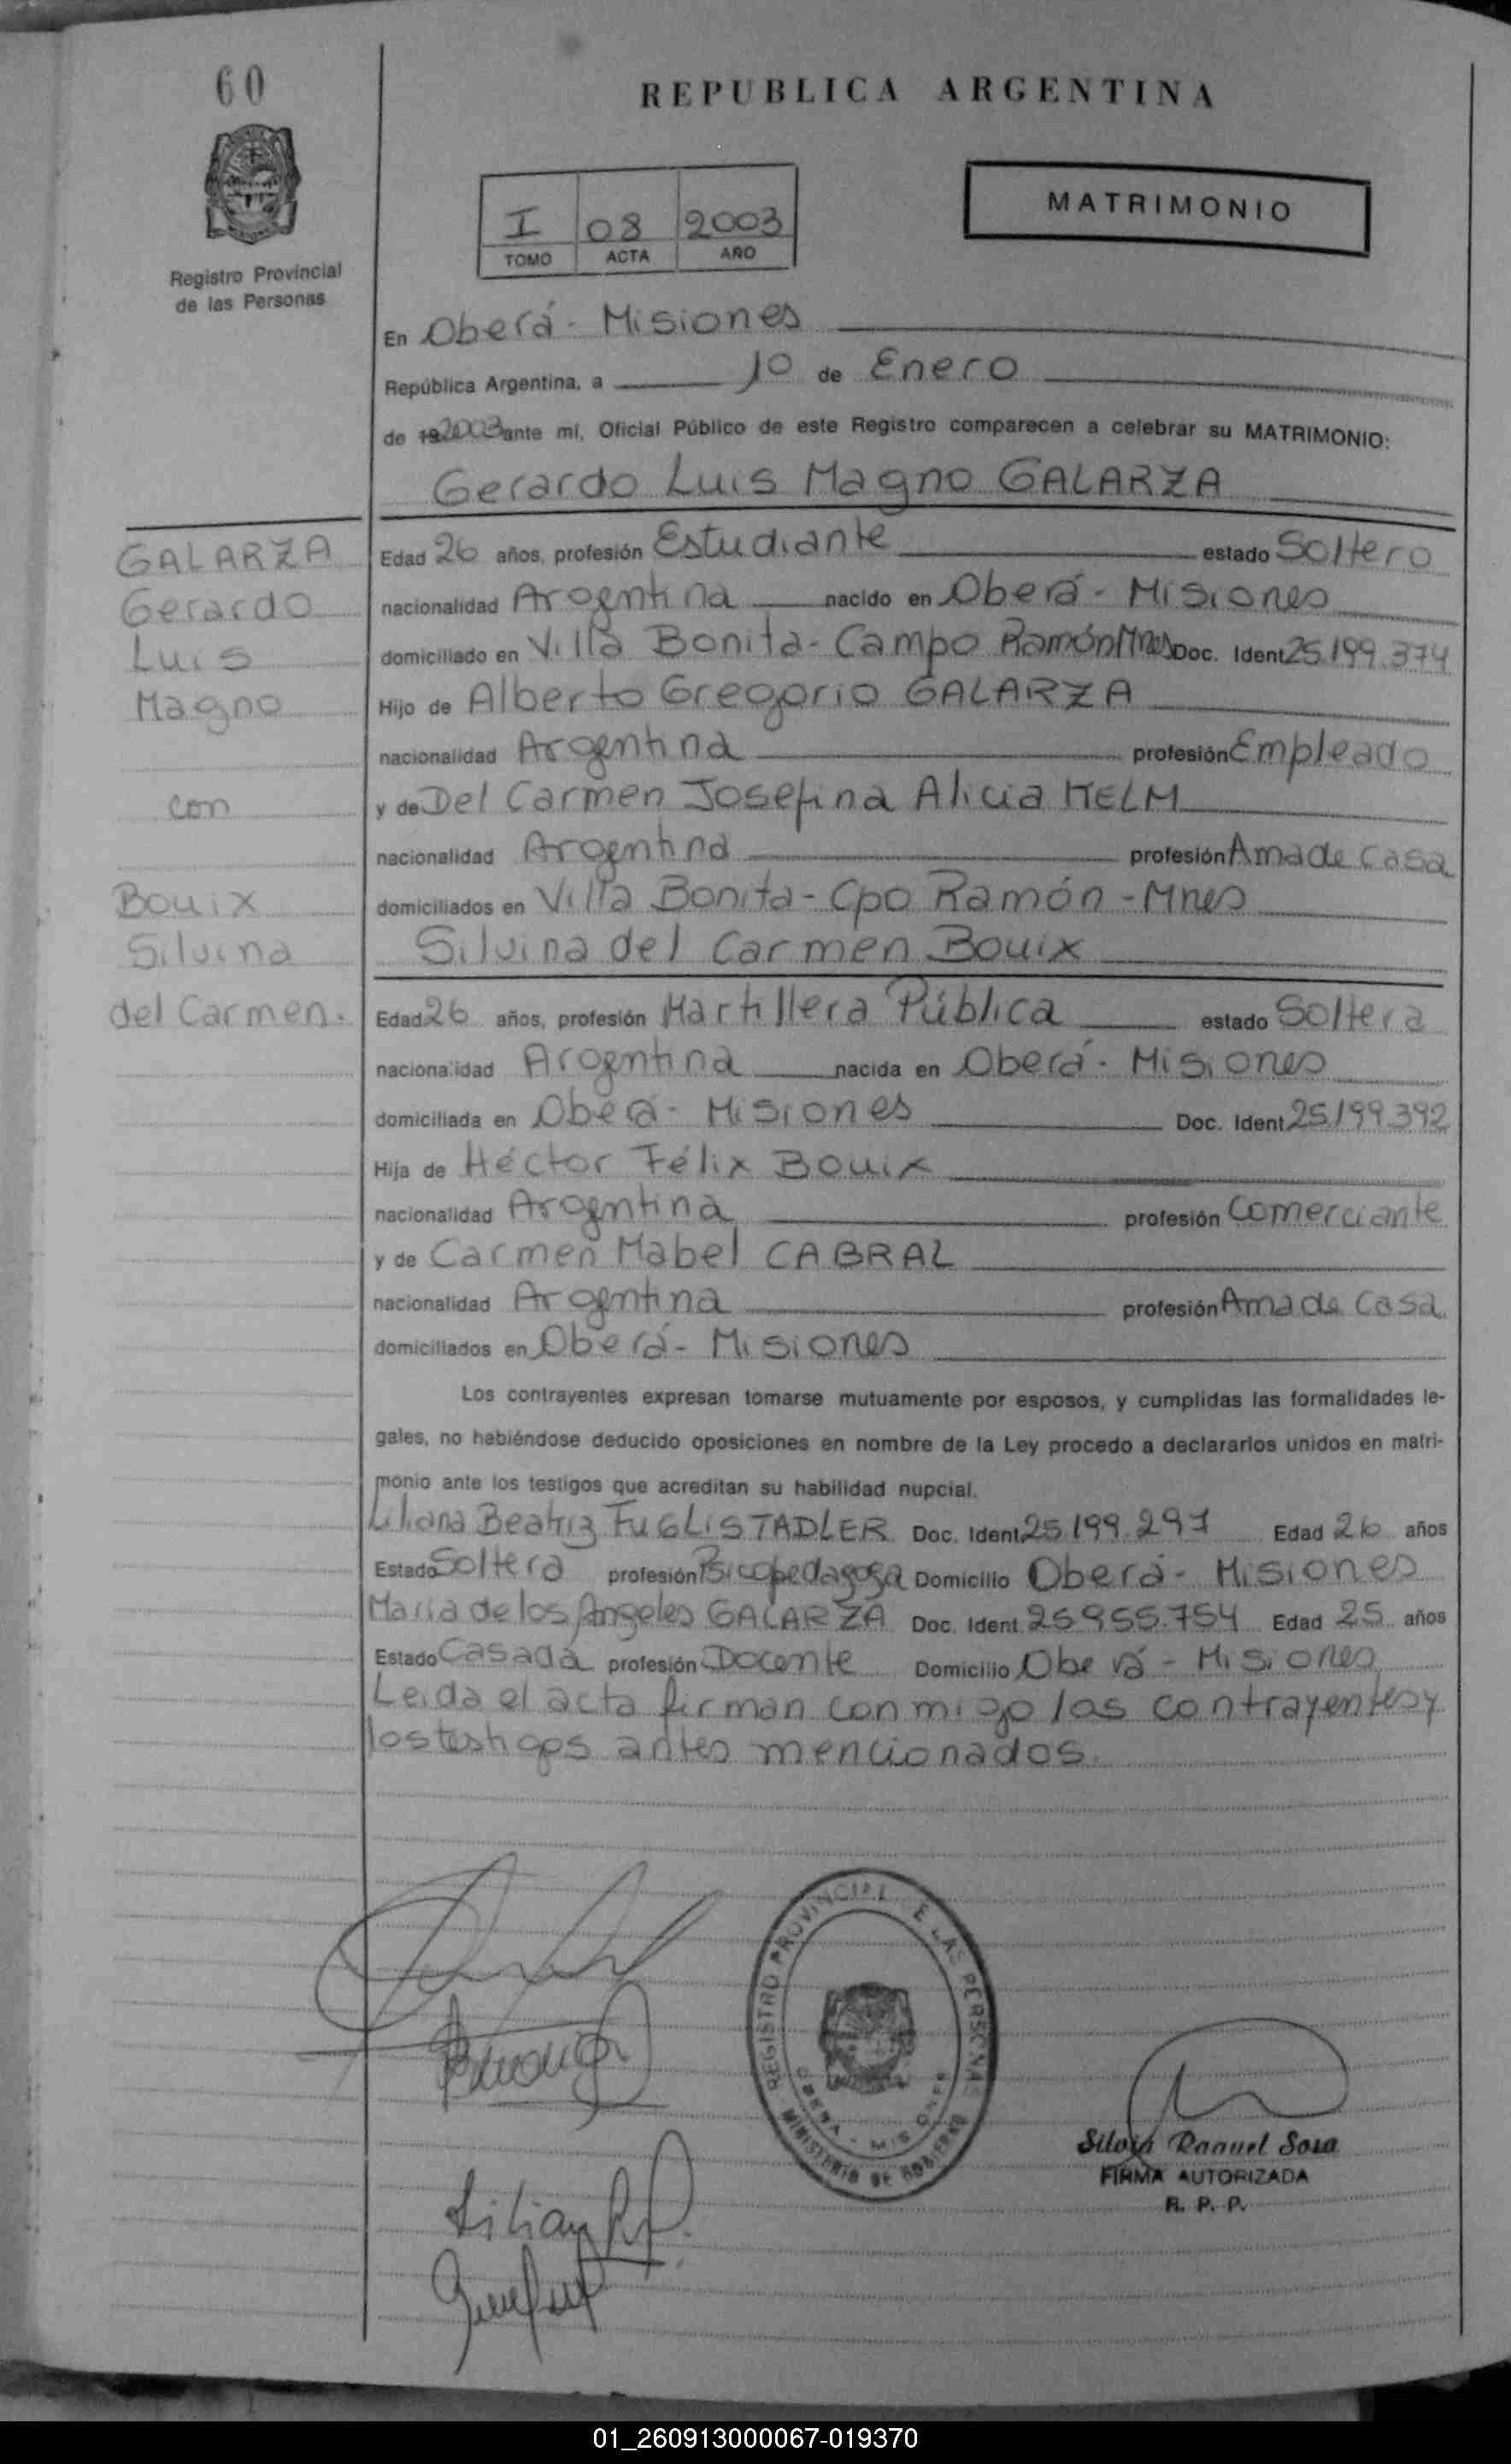 60
REPUBLICA ARGENTINA
Registro Provincial
de las Personas
I 08 2003
TOMO ACTA AÑO
MATRIMONIO
En Oberá - Misiones
República Argentina, a 10 de Enero
de 19 2003 ante mí, Oficial Público de este Registro comparecen a celebrar su MATRIMONIO:
Gerardo Luis Magno GALARZA
GALARZA
Gerardo
Luis
Magno
con
Bouix
Silvina
del Carmen.
Edad 26 años, profesión Estudiante estado Soltero
nacionalidad Argentina nacido en Oberá - Misiones
domiciliado en Villa Bonita - Campo Ramón Mnes Doc. Ident 25.199.374
Hijo de Alberto Gregorio GALARZA
nacionalidad Argentina profesión Empleado
y de Del Carmen Josefina Alicia HELM
nacionalidad Argentina profesión Ama de Casa
domiciliados en Villa Bonita - Cpo Ramón - Mnes
Silvina del Carmen Bouix
Edad 26 años, profesión Martillera Pública estado Soltera
nacionalidad Argentina nacida en Oberá - Misiones
domiciliada en Oberá - Misiones Doc. Ident 25.199.392
Hija de Héctor Félix Bouix
nacionalidad Argentina profesión Comerciante
y de Carmen Mabel CABRAL
nacionalidad Argentina profesión Ama de Casa
domiciliados en Oberá - Misiones
Los contrayentes expresan tomarse mutuamente por esposos, y cumplidas las formalidades le-
gales, no habiéndose deducido oposiciones en nombre de la Ley procedo a declararlos unidos en matri-
monio ante los testigos que acreditan su habilidad nupcial.
Liliana Beatriz FUGLISTADLER Doc. Ident 25.199.297 Edad 26 años
Estado Soltera profesión Psicopedagoga Domicilio Oberá - Misiones
Maria de los Angeles GALARZA Doc. Ident. 25.955.754 Edad 25 años
Estado Casada profesión Docente Domicilio Oberá - Misiones
Leida el acta firman conmigo los contrayentes y
los testigos antes mencionados.
REGISTRO PROVINCIAL DE LAS PERSONAS
OBERA - MISIONES
MINISTERIO DE GOBIERNO
Silvia Raquel Sosa
FIRMA AUTORIZADA
R. P. P.
01_260913000067-019370